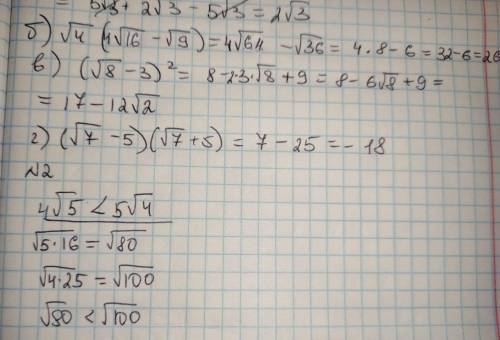 = 5√3 + 2√3 - 5√3 = 2√3
б) √4 (4√16 - √9) = 4√64 - √36 = 4·8-6 = 32-6=26
в) (√8 - 3)² = 8-2·3·√8 + 9 = 8- 6√8 + 9 =
= 17-12√2
г) (√7 - 5)(√7 + 5) = 7 - 25 = - 18
№2
4√5 < 5√4
√5·16 = √80
√4·25 = √100
√80 < √100